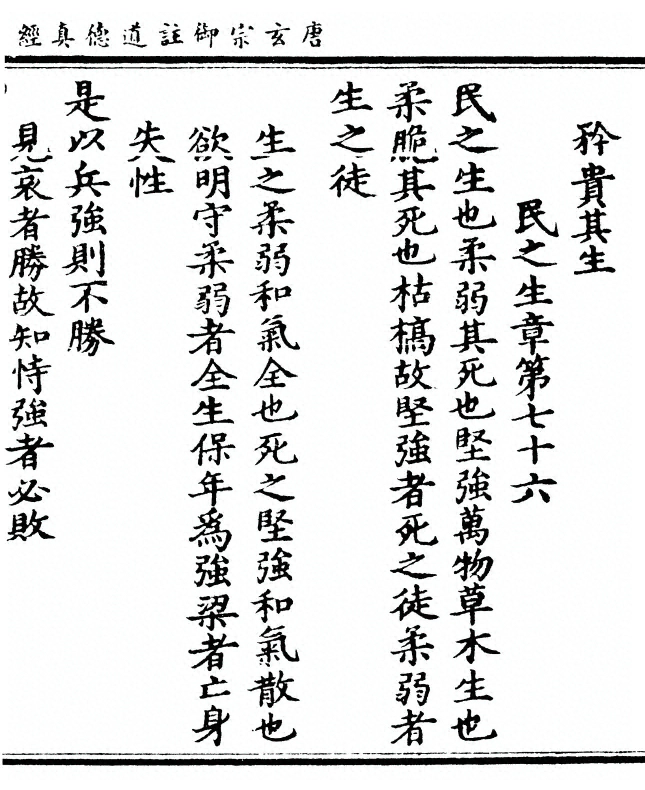 唐玄宗御註道德真經
矜貴其生
民之生章第七十六
民之生也柔弱其死也堅強萬物草木生也
柔脆其死也枯槁故堅強者死之徒柔弱者
生之徒
生之柔弱和氣全也死之堅強和氣散也
欲明守柔弱者全生保年為強梁者亡身
失性
是以兵強則不勝
見哀者勝故知恃強者必敗